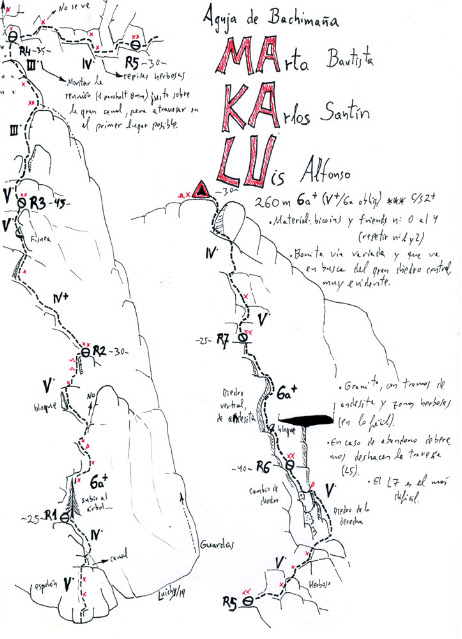 Aguja de Bachimaña
MArta Bautista
KArlos Santín
LUis Alfonso
260m 6a+ (V+/6a oblig) *** C/S2+
• Material: bicoins y friends nº 0 al 4
(repetir nº 1 y 2)
• Bonita vía variada y que va
en busca del gran diedro central,
muy evidente.
• Granito, con tramos de
andesita y zonas herbosas
(en lo fácil).
• En caso de abandono debere
mos deshacer la travesía
(L5).
• El L7 es el más
difícil.
No se ve
R4-35-
III
IV
R5-30-
repisas herbosas
Montar la
reunión (1 parabolt 8mm) justo sobre
la gran canal, para atravesar en
el primer lugar posible.
III
V
R3-45-
V
Fisura
IV+
R2-30-
V
bloque
NO
6a+
subir al
árbol
-25-R1
IV
canal
espolón
V
Guardas
Luichy/19
-30-
IV
V
-25-R7
6a+
Diedro
vertical,
de andesita
bloque
-40-R6
cambio de
diedro
V
Diedro de la
derecha
V
Herboso
R5